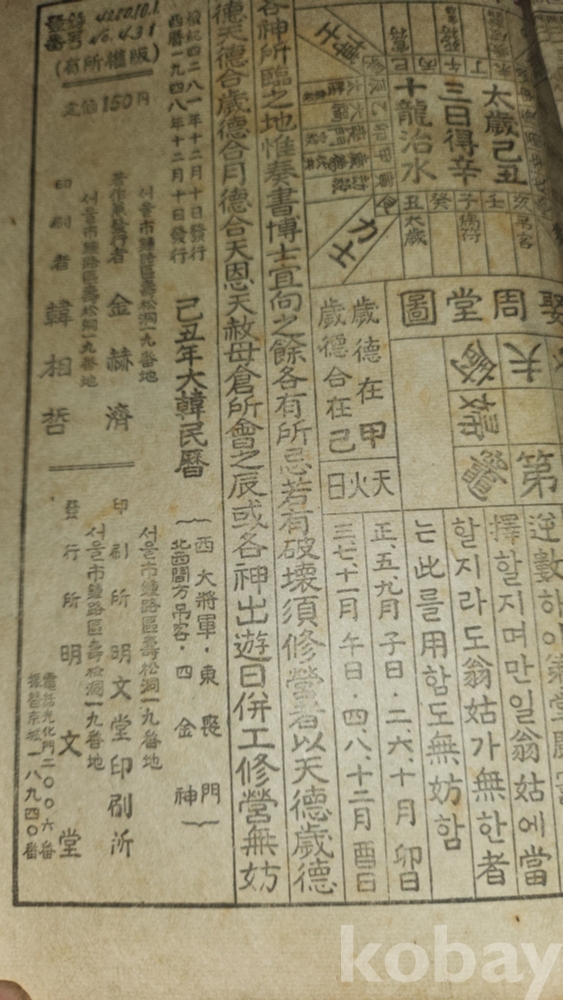 逆數하야
擇할지며만일翁姑에當
할지라도翁姑가無한者
는此를用함도無妨함
周堂圖
夫
第
翁
竈
太歲己丑
三日得辛
十龍治水
博士
力士
丑太歲
癸
子病符
壬
歲德在甲
歲德合在己
天火日
正、五、九月 子日·二、六、十月 卯日
三、七、十一月 午日·四、八、十二月 酉日
各神所臨之地惟奏書博士宜向之餘各有所忌若有破壞須修營者以天德歲德
德天德合歲德合月德合天恩天赦母倉所會之辰或各神出遊日併工修營無妨
檀紀四二八一年十二月十日發行
西曆一九四八年十二月十日發行
己丑年大韓民曆
西 大將軍·東 喪門
北西間方吊客·四 金神
(有所權版)
定價150円
서울市鍾路區壽松洞一九番地
著作兼發行者 金赫濟
서울市鍾路區壽松洞一九番地
印刷者 韓相哲
서울市鍾路區壽松洞一九番地
印刷所 明文堂印刷所
서울市鍾路區壽松洞一九番地
發行所 明文堂
電話光化門二〇〇六番
振替京城一八九四〇番
kobay